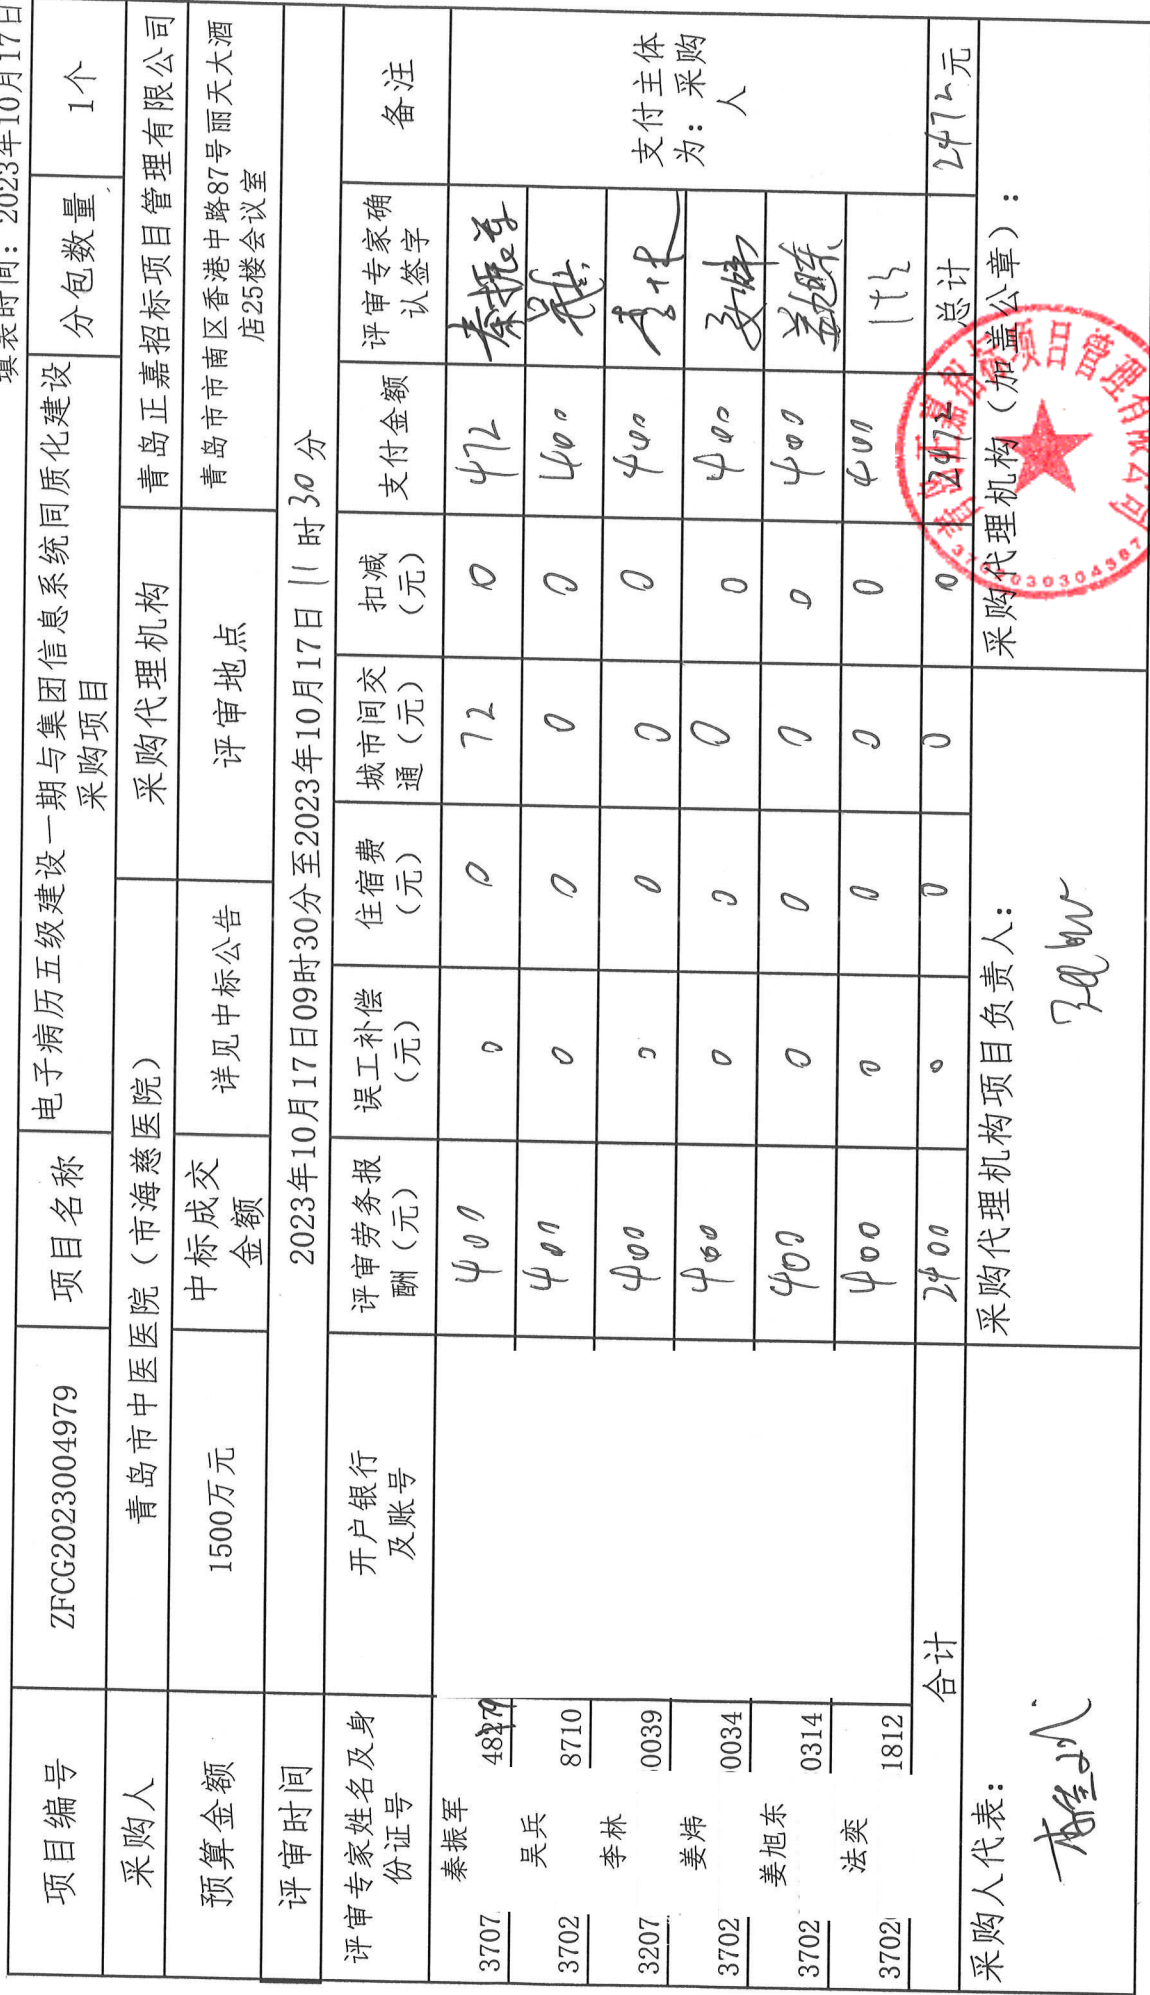 填表时间：2023年10月17日
项目编号 ZFCG2023004979 项目名称 电子病历五级建设一期与集团信息系统同质化建设 分包数量 1个
采购项目
采购人 青岛市中医医院（市海慈医院） 采购代理机构 青岛正嘉招标项目管理有限公司
预算金额 1500万元 中标成交 详见中标公告 评审地点 青岛市市南区香港中路87号丽天大酒
金额 店25楼会议室
评审时间 2023年10月17日09时30分至2023年10月17日 11 时 30 分
评审专家姓名及身 开户银行 评审劳务报 误工补偿 住宿费 城市间交 扣减 支付金额 评审专家确 备注
份证号 及账号 酬（元） （元） （元） 通（元） （元） 认签字
秦振军
3707 4827 400 0 0 72 0 472 秦振军
吴兵
3702 8710 400 0 0 0 0 400 吴兵
李林
3207 0039 400 0 0 0 0 400 李林
姜炜
3702 0034 400 0 0 0 0 400 姜炜
姜旭东
3702 0314 400 0 0 0 0 400 姜旭东
法奕
3702 1812 400 0 0 0 0 400
支付主体
为：采购
人
合计 2400 0 0 0 0 2472 总计 2472元
采购人代表： 采购代理机构项目负责人： 采购代理机构（加盖公章）：
青岛正嘉招标项目管理有限公司